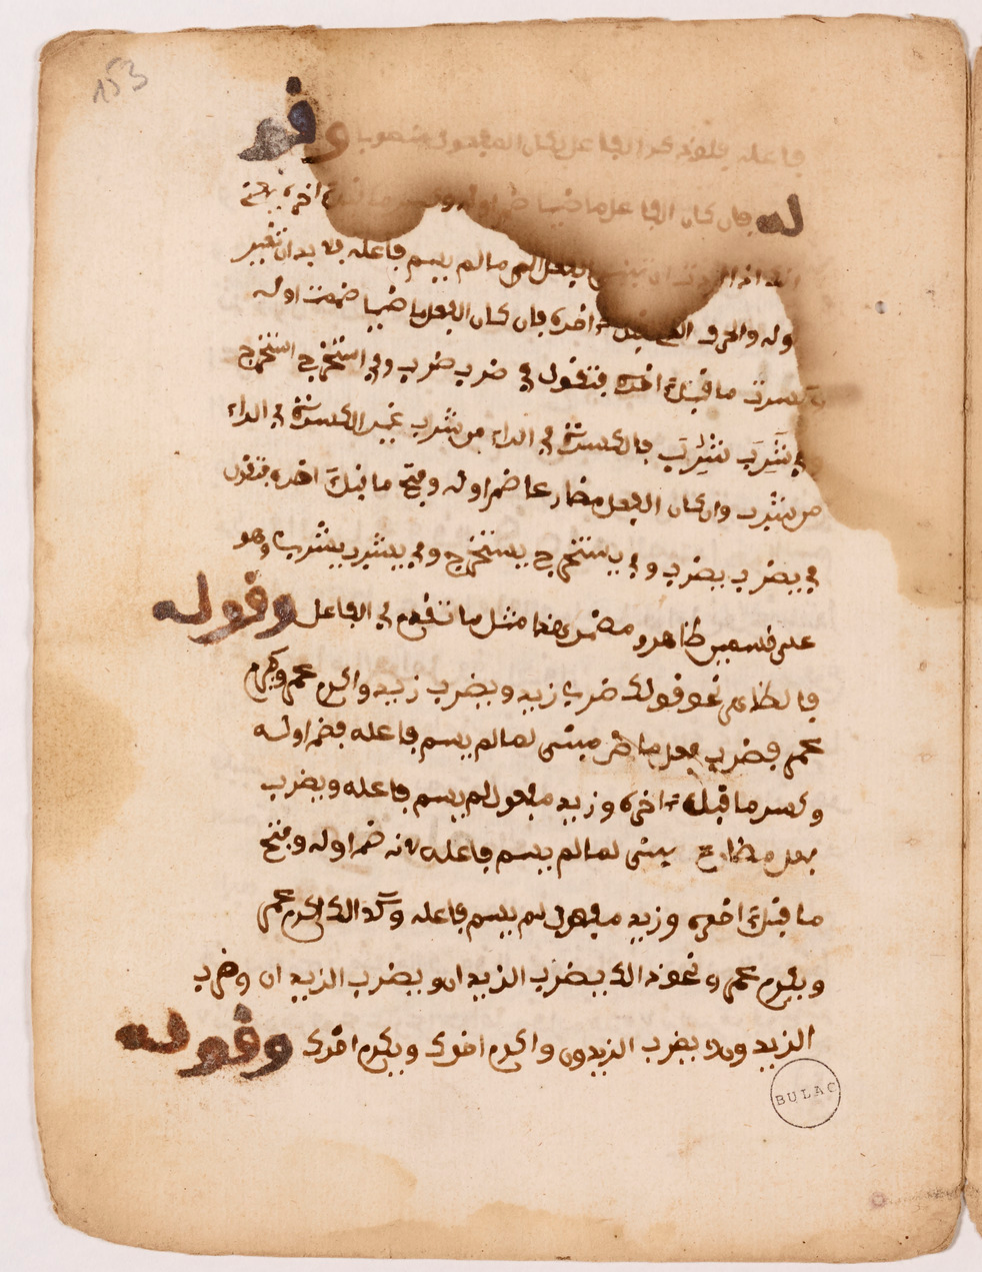 153
فاعله فلو ذكر الفاعل لكان المفعول منصوبا وقو
له فان كان الفعل ماضيا ضم اوله وكسر ما قبل اخره
اذا اردت ان تبني الفعل الى ما لم يسم فاعله فلا بد ان تغير
اوله والحرف الذي قبل ءاخره فان كان الفعل ماضيا ضممت اوله
وكسرت ما قبل اخره فتقول في ضرب ضرب وفي استخرج استخرج
وفي شرب شرب فالكسرة في الراء من شرب غير الكسرة في الراء
من شرب وان كان الفعل مضارعا ضم اوله وفتح ما قبل اخره فتقول
في يضرب يضرب وفي يستخرج يستخرج وفي يشرب يشرب وهو
على قسمين ظاهر ومضمر هذا مثل ما تقدم في الفاعل وقوله
فالظاهر نحو قولك ضرب زيد ويضرب زيد واكرم عمر ويكرم
عمر فضرب فعل ماض مبني لما لم يسم فاعله فضم اوله
وكسر ما قبل ءاخره وزيد مفعول لم يسم فاعله ويضرب
فعل مضارع يبنى لما لم يسم فاعله لانه ضم اوله وفتح
ما قبل اخره وزيد مفعول لم يسم فاعله وكذالك اكرم عمر
ويكرم عمر ونحو ذالك يضرب الزيدان ويضرب الزيدان وضرب
الزيدون ويضرب الزيدون واكرم اخوك ويكرم اخوك وقوله
BULAC